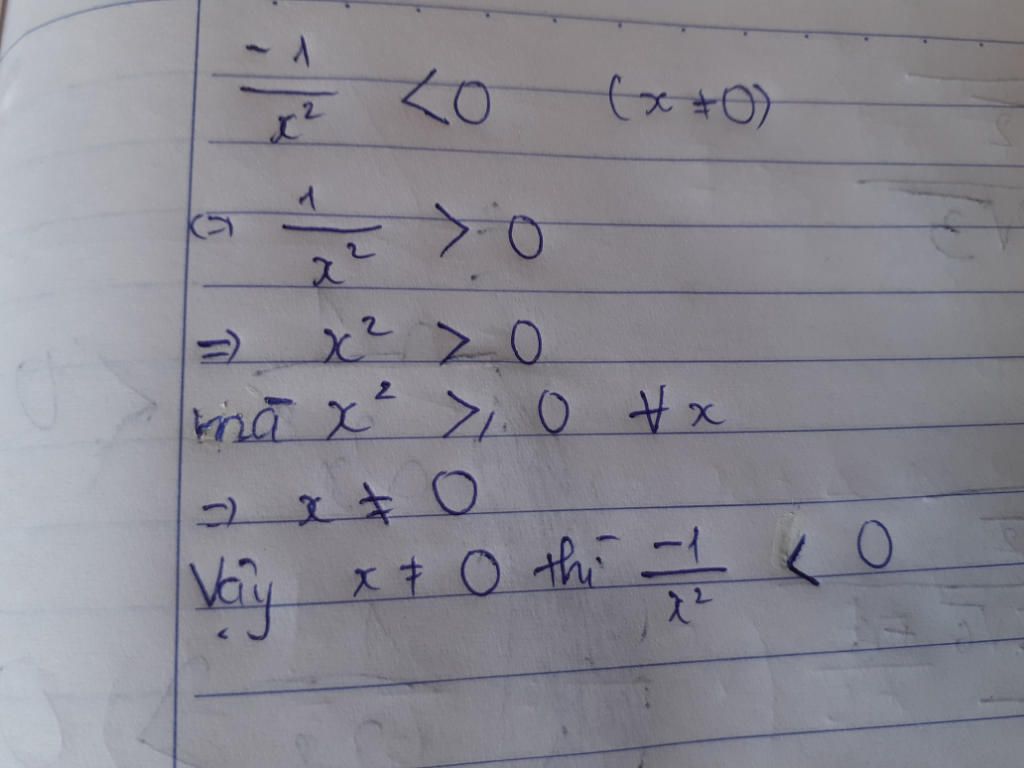 -1/x² < 0 (x ≠ 0)
⇔ 1/x² > 0
⇒ x² > 0
mà x² ⩾ 0 ∀x
⇒ x ≠ 0
Vậy x ≠ 0 thì -1/x² < 0